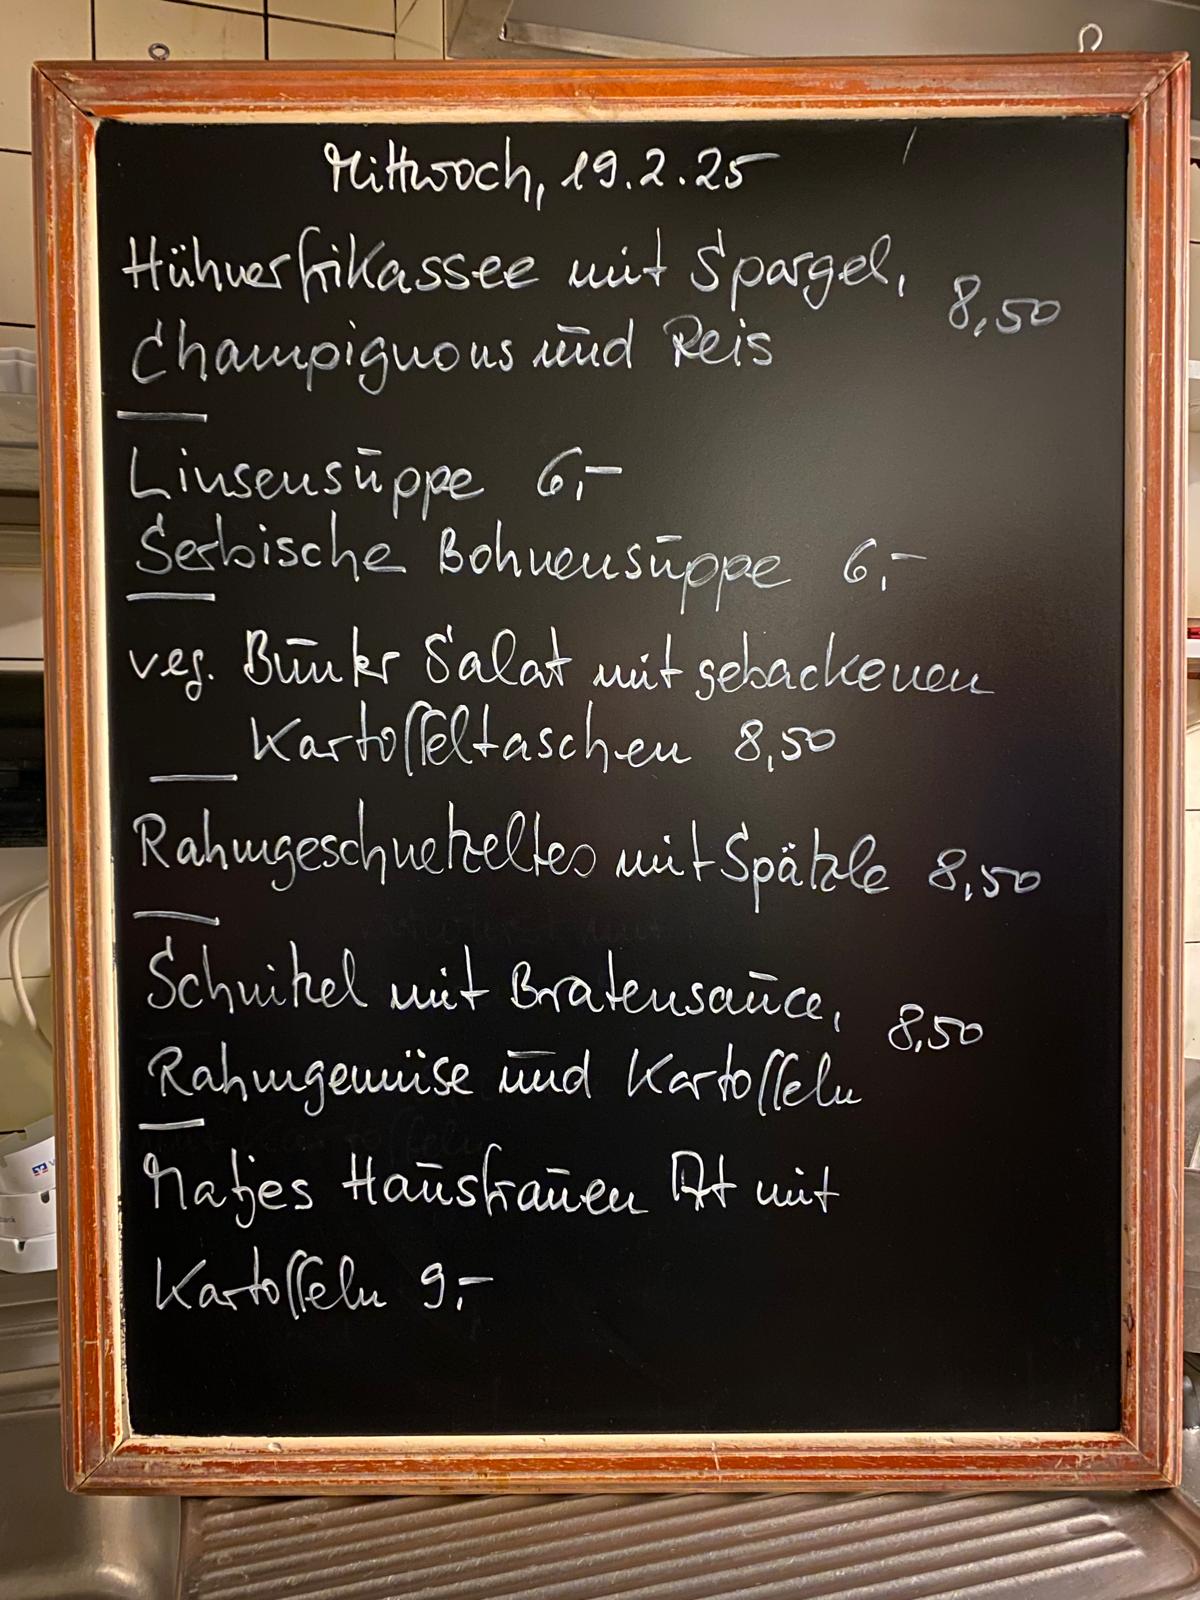 Mittwoch, 19.2.25
Hühnerfrikassee mit Spargel,
8,50
Champignons und Reis
Linsensuppe 6,-
Serbische Bohnensuppe 6,-
veg. Bunter Salat mit gebackenen
Kartoffeltaschen 8,50
Rahmgeschnetzeltes mit Spätzle 8,50
Schnitzel mit Bratensauce,
8,50
Rahmgemüse und Kartoffeln
Matjes Hausfrauen Art mit
Kartoffeln 9,-